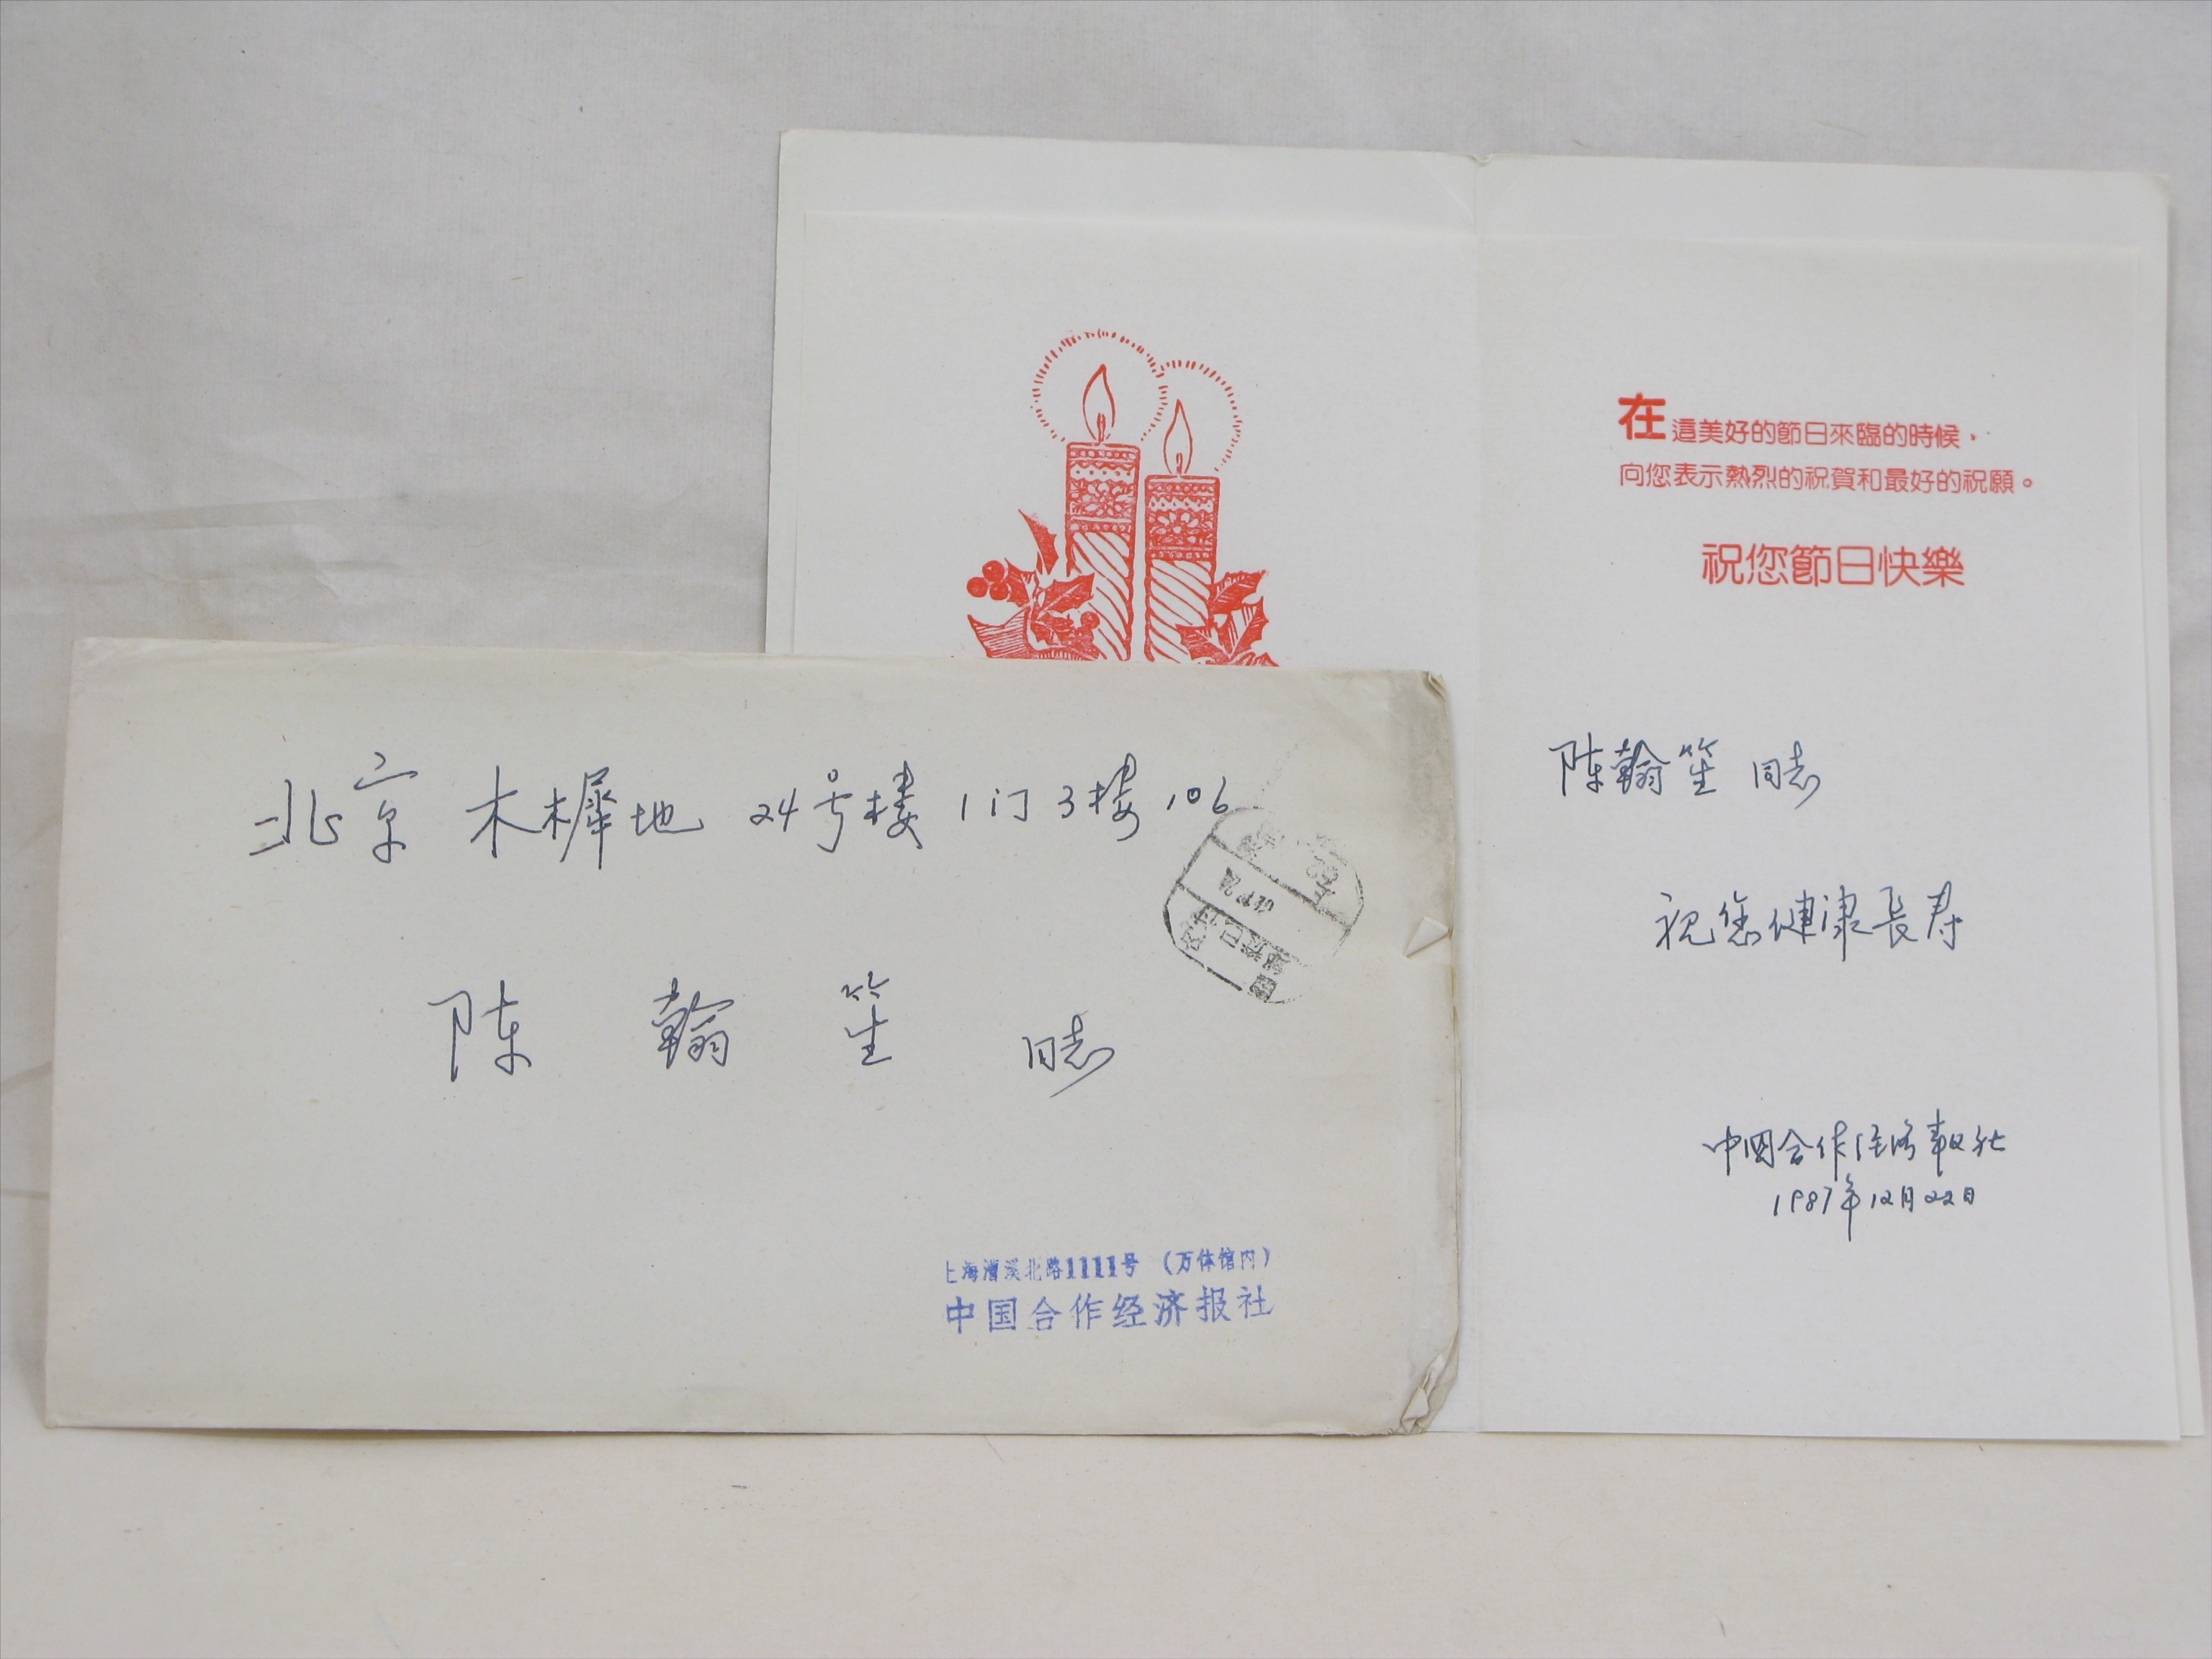 在這美好的節日來臨的時候，
向您表示熱烈的祝賀和最好的祝願。
祝您節日快樂
陈翰笙 同志
祝您健康長寿
中国合作经济報社
1987年12月22日
北京 木樨地 24号楼 1门3楼 106
陈 翰 笙 同志
上海漕溪北路1111号（万体馆内）
中国合作经济报社